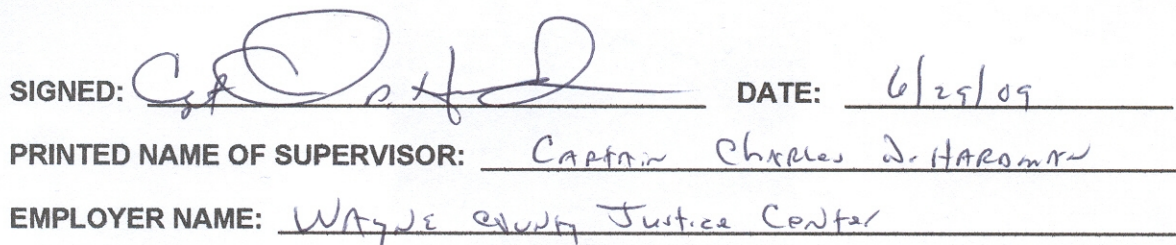 SIGNED: DATE: 6/29/09
PRINTED NAME OF SUPERVISOR: CAPTAIN ChARles D. HARDMAN
EMPLOYER NAME: WAyNE COUNTy Justice CeNter